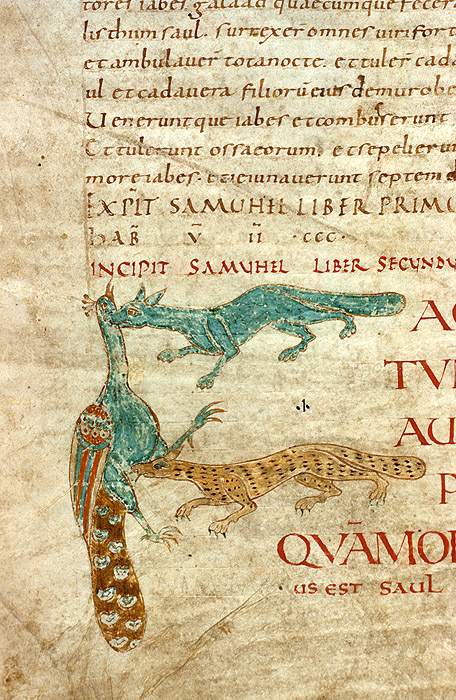 tores iabes galaad quaecumque fecera
listhum saul. surrexer omnes uiri fort
et ambulauer tota nocte. et tuler cada
ul et cadauera filiorū eius de muro be
Uenerunt que iabes et combuserunt
Et tulerunt ossa eorum. et sepelieru
more iabes. et ieiunauerunt septem d
EXPĪT SAMUHEL LIBER PRIMU
HAB̄ V̄ ĪĪ ·CCC·
INCIPIT SAMUHEL LIBER SECUNDU
AC
TUM
AU
P
QUĀMOR
US EST SAUL